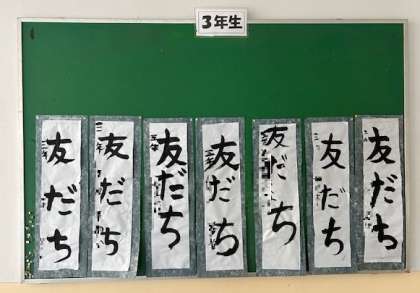 3年生
友だち
友だち
友だち
友だち
友だち
友だち
友だち